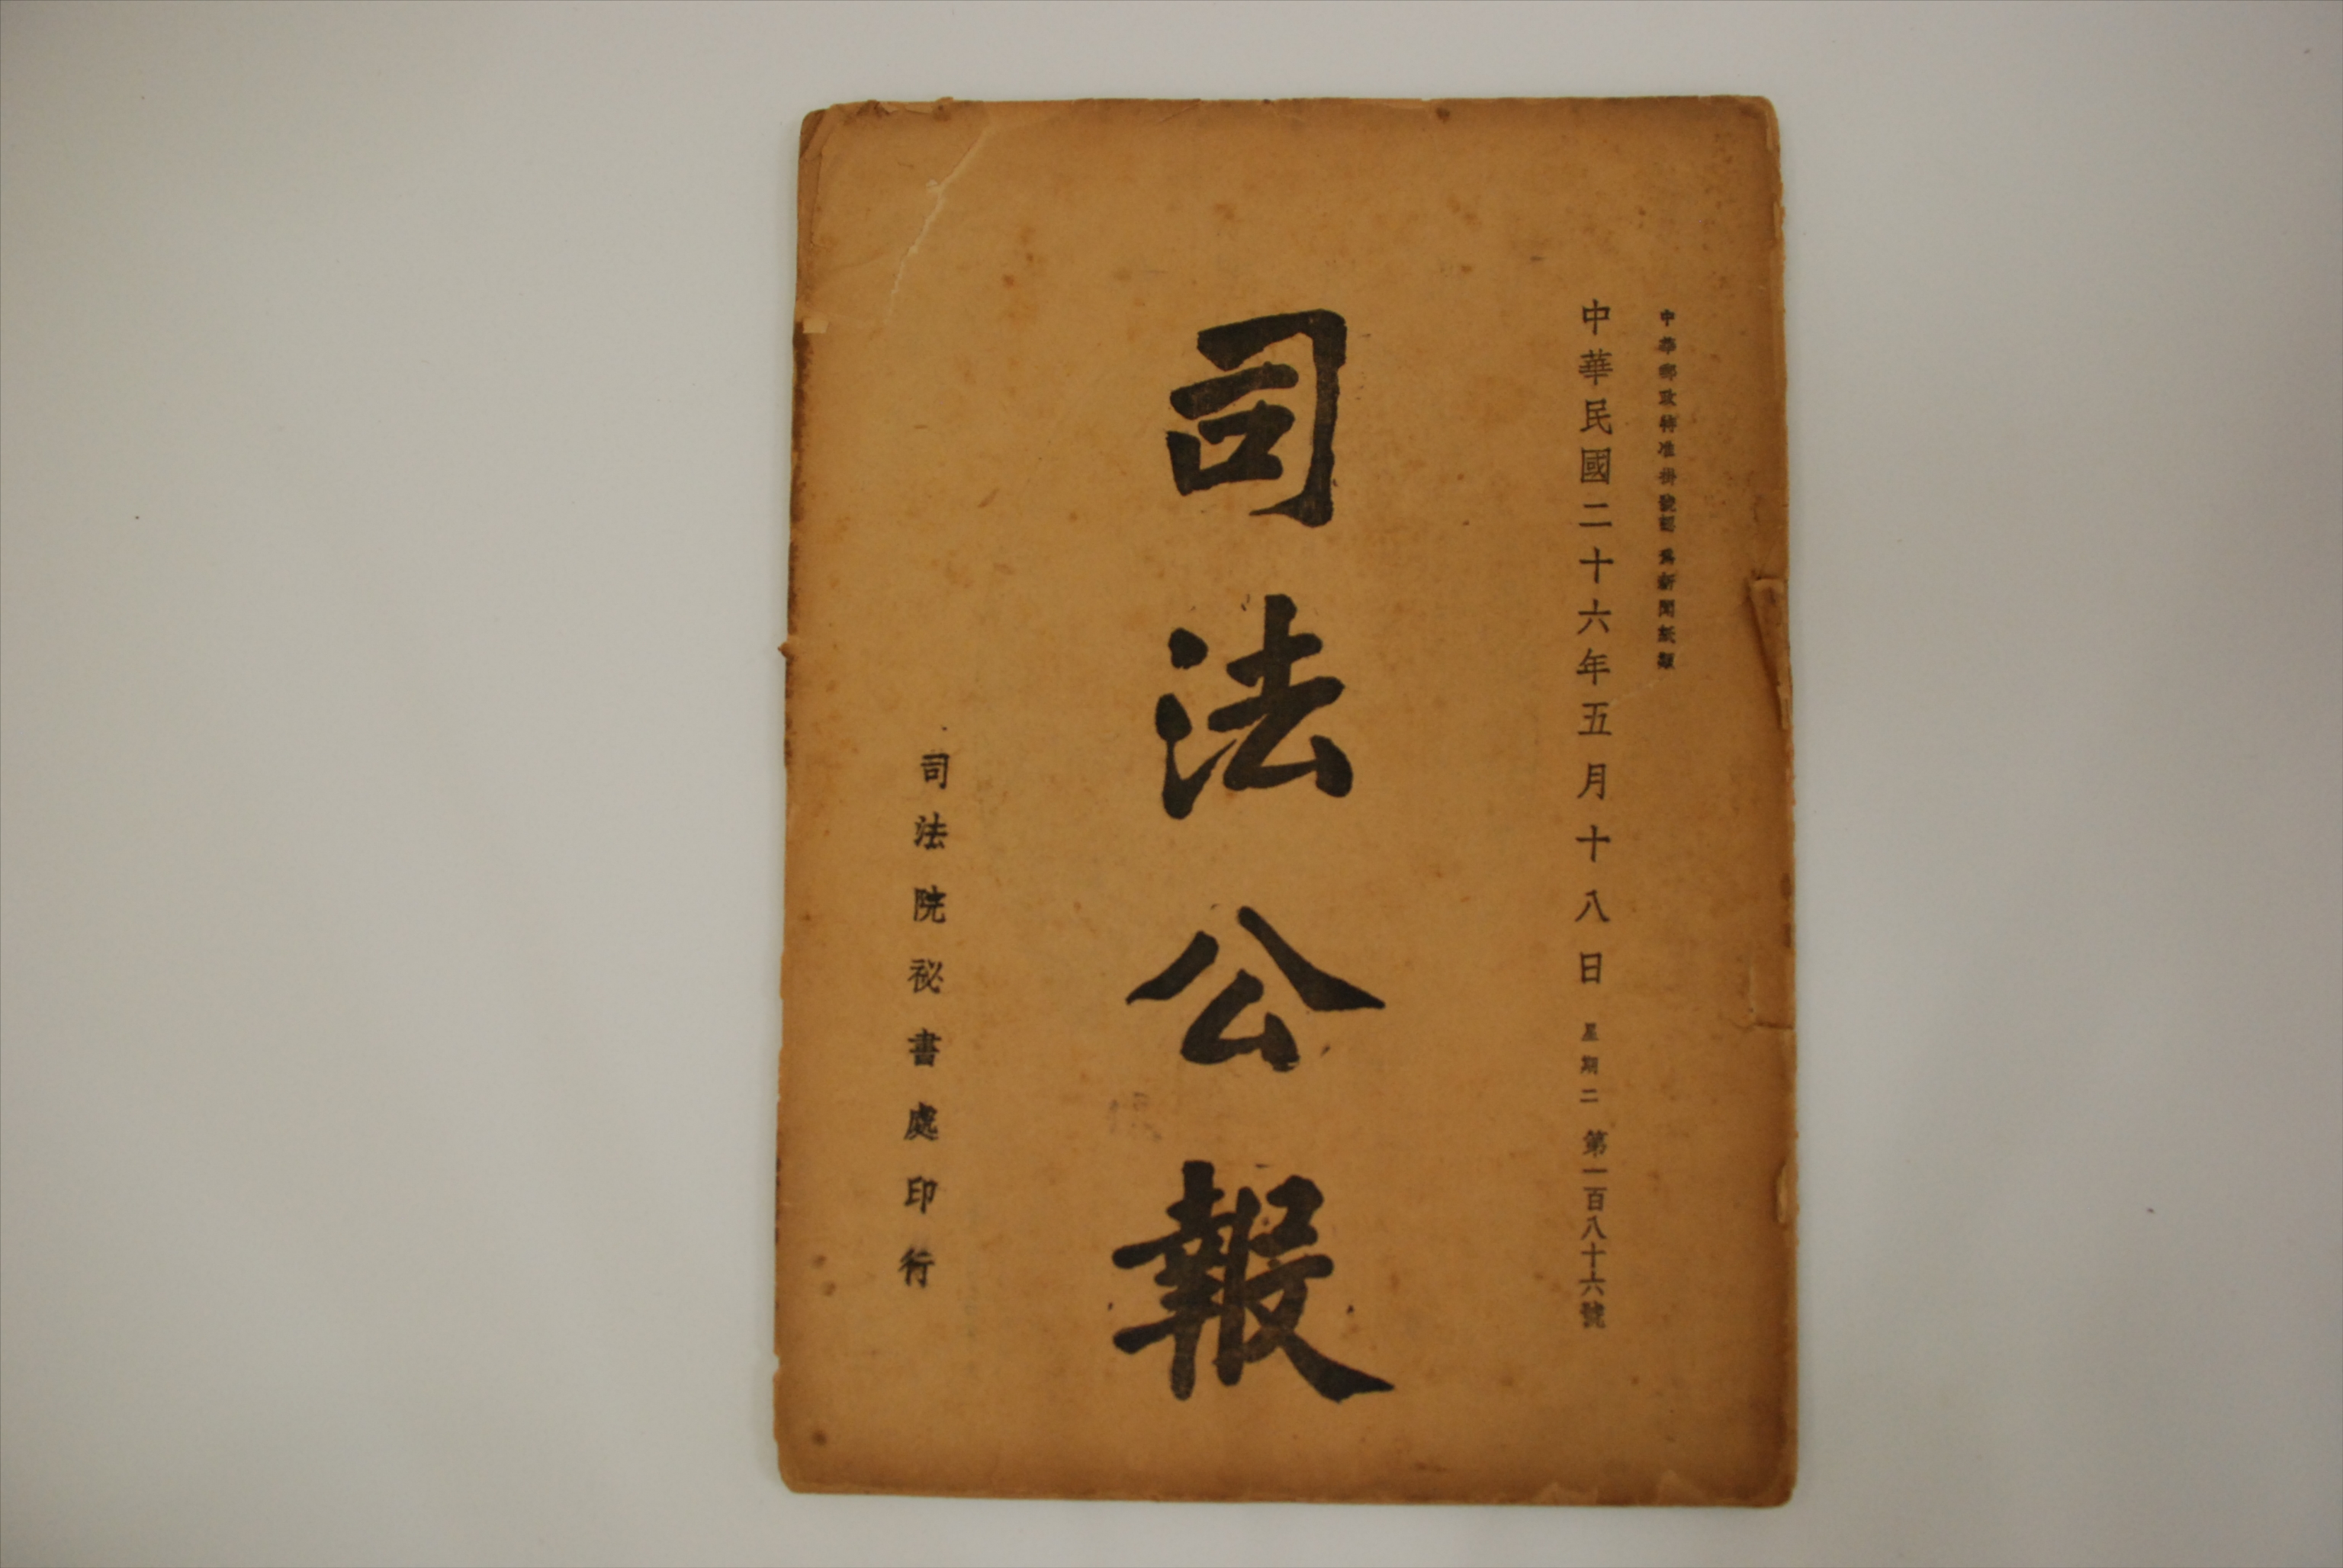 中華郵政特准掛號認爲新聞紙類
中華民國二十六年五月十八日 星期二 第一百八十六號
司法公報
司法院祕書處印行